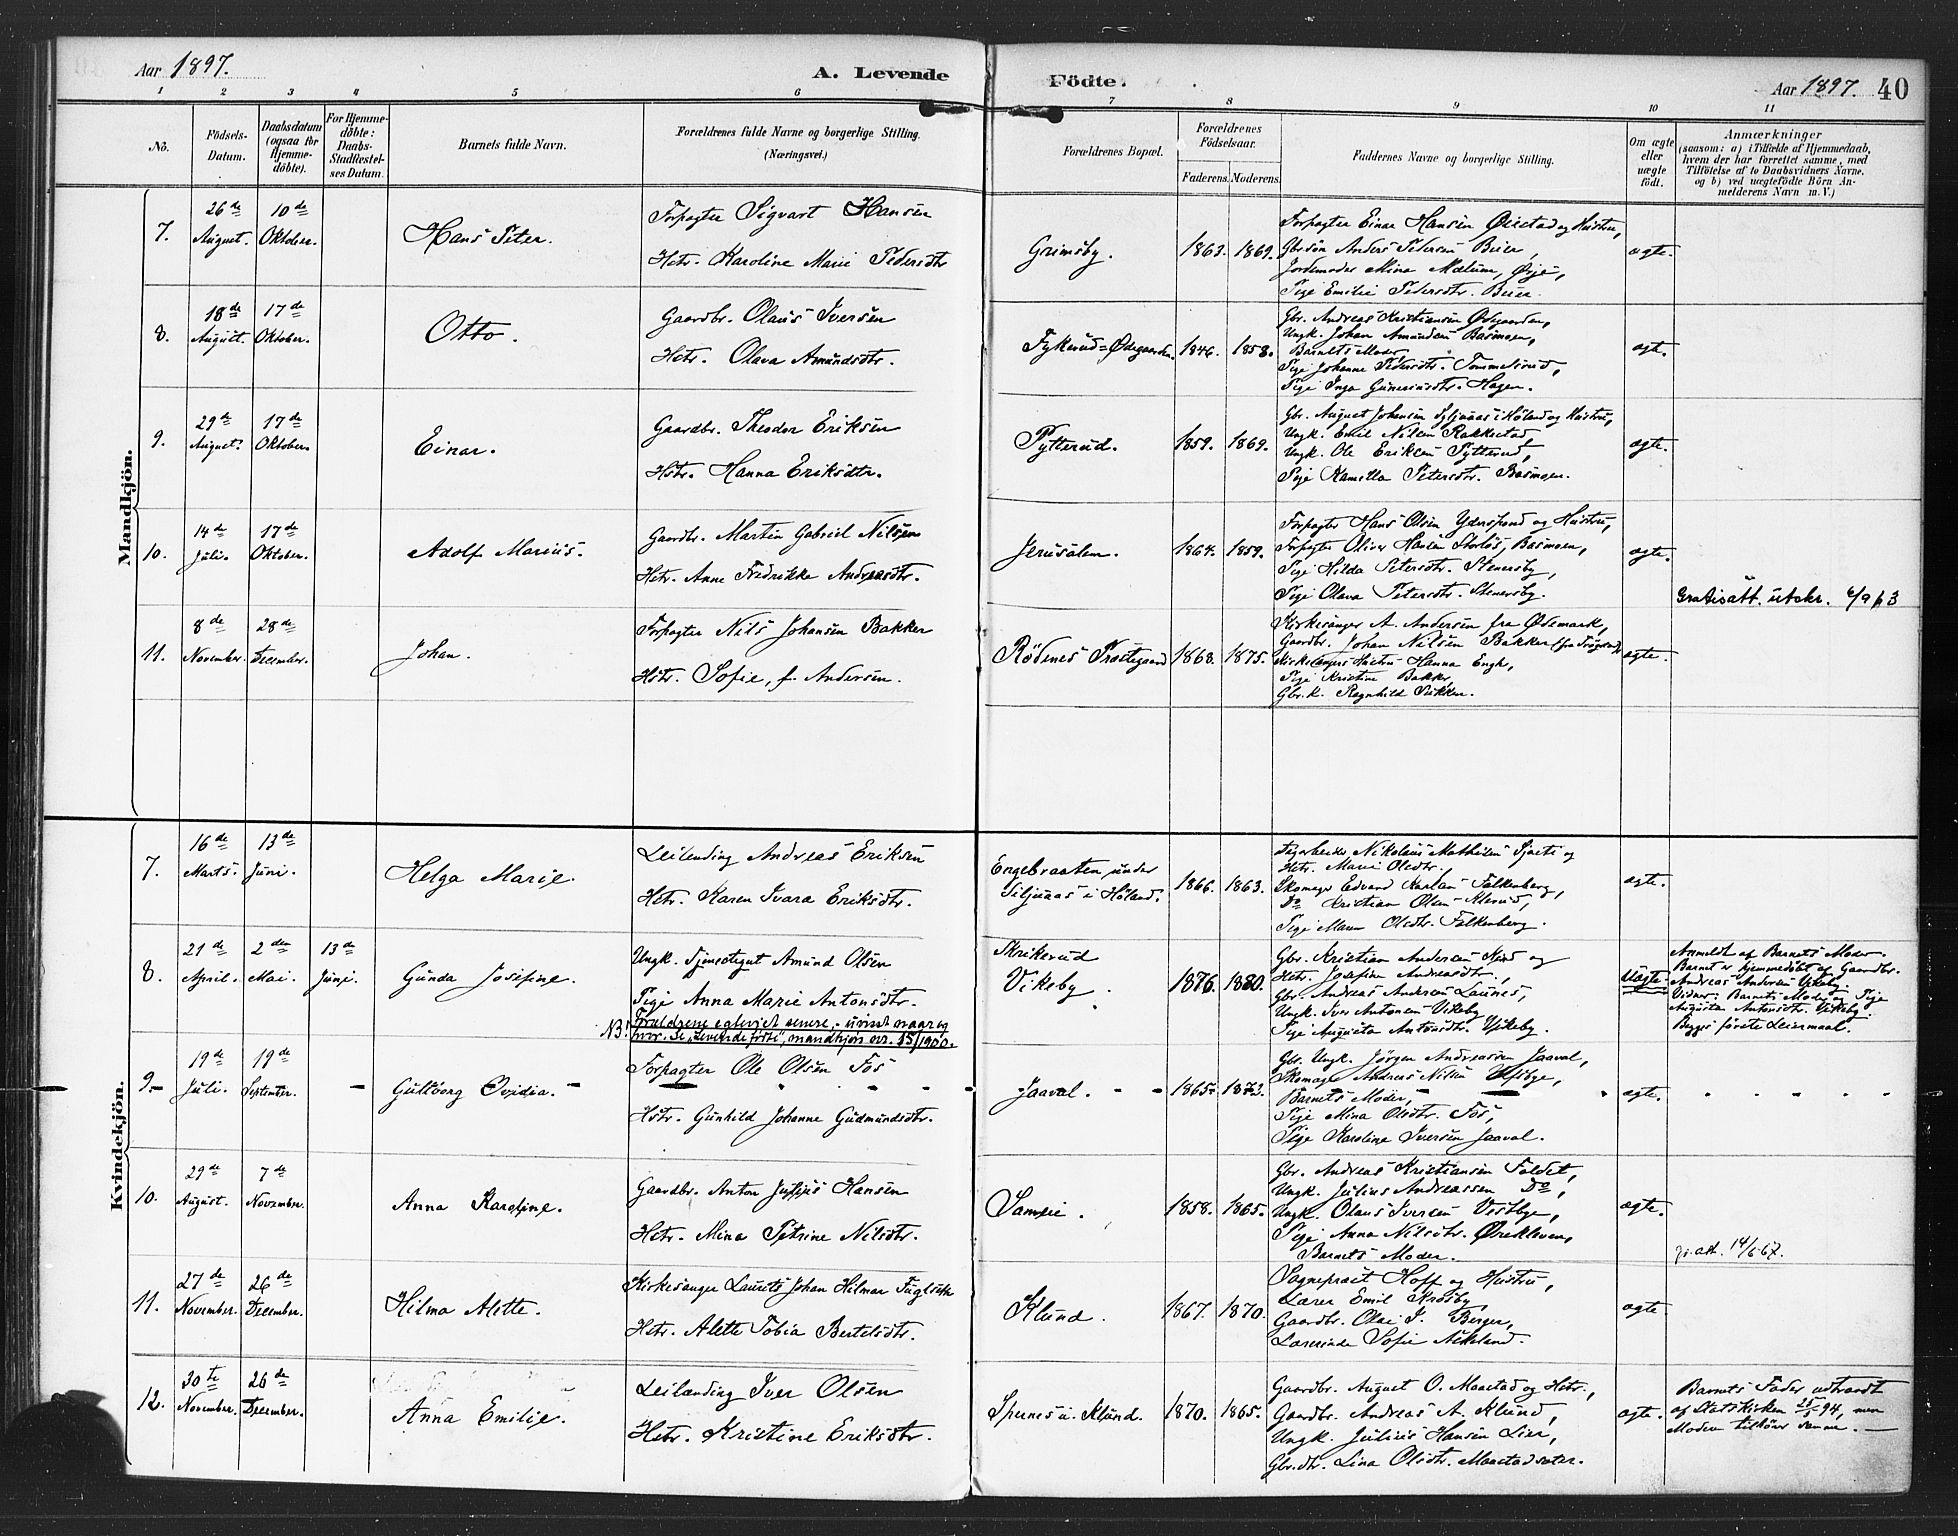 Aar 1897.
A. Levende
Födte.
Aar 1897.
40
1 2 3 4 5 6 7 8 9 10 11
No.
Födsels-
Datum.
Daabsdatum
(ogsaa for
Hjemme-
döbte).
For Hjemme-
döbte:
Daabs-
Stadfæstel-
ses Datum.
Barnets fulde Navn.
Forældrenes fulde Navne og borgerlige Stilling.
(Næringsvei.)
Forældrenes Bopæl.
Forældrenes
Födselsaar.
Faderens. Moderens.
Faddernes Navne og borgerlige Stilling.
Om ægte
eller
uægte
födt.
Anmærkninger
(saasom: a) i Tilfælde af Hjemmedaab,
hvem der har forrettet samme, med
Tilföielse af to Daabsvidners Navne.
og b) ved uægtefödte Börn An-
melderens Navn m. V.)
Mandkjön.
7.
26de
August.
10de
Oktober.
Hans Peter.
Forpagter Sigvart Hansen
Hstr. Karoline Marie Pedersdtr
Grimsby.
1863. 1869.
Forpagter Einar Hansen Øiestad og Hustru,
Gbr.sön Anders Pedersen Beier,
Jordemoder Mina Mælum, Ørje,
Pige Emilie Pedersdtr. Beier.
ægte.
8.
18de
August.
17de
Oktober.
Otto.
Gaardbr. Olaus Iversen
Hstr. Olava Amundsdtr.
Fykerud-Ødegaarden.
1846. 1858.
Gbr. Andreas Kristiansen Ødegaarden,
Ungk. Johan Amundsen Basmoen,
Barnets Moder,
Pige Johanne Pedersdtr. Tommelsrud,
Pige Inga Gunerinsdtr. Hagen.
ægt.
9.
29de
August.
17de
Oktober.
Einar.
Gaardbr. Theodor Eriksen
Hstr. Hanna Eriksdtr.
Pytterud.
1859. 1869.
Gbr. August Johansen i Høland og Hustru,
Ungk. Emil Nilsen Rakkestad,
Ungk. Ole Eriksen Pytterud,
Pige Kamilla Petersdtr. Basmoen.
ægte.
10.
14de
Juli.
17de
Oktober.
Adolf Marius.
Gaardbr. Martin Gabriel Nilsen
Hstr. Anne Fredrikke Andreasdtr.
Jerusalem.
1864. 1859.
Forpagter Hans Olsen og Hustru,
Forpagter Oliver Hansen Basmoen,
Pige Hilda Petersdtr. Stenersby,
Pige Olava Petersdtr. Stenersby.
ægte.
Gratisatt. utskr. 6/9 63
11.
8de
November.
28de
December.
Johan.
Forpagter Nils Johansen Bakker
Hstr. Sofie, f. Andersen.
Rödenes Præstegaard
1868. 1875.
Kirkesanger A. Andersen fra Ødemark,
Gaardbr. Johan Nilsen Bakker (fra Trögstad),
Kirkesangers Hustru Hanna Engh,
Pige Kristine Bakker,
Gbr.k. Ragnhild Rikken.
ægte.
Kvindekjön.
7.
16de
Marts.
13de
Juni.
Helga Marie.
Leilending Andreas Eriksen
Hstr. Karen Ivara Eriksdtr.
Engebraaten under
Siljunaas i Høland.
1866. 1863.
Nikolaus Mathisen og
Hstr. Marie Olsdtr.
Skomager Edvard Karlsen Falkenberg,
Do Kristian Olsen Klerud,
Pige Maren Olsdtr. Falkenberg.
ægte.
8.
21de
April.
2den
Mai.
13de
Juni.
Gunda Josefine.
Ungk. Tjenestegut Amund Olsen
Pige Anna Marie Antonsdtr.
NB! Foreldrene egteviet senere, - uvisst naar og
hvor. Se "Levende födte", mandkjön nr. 15/1900.
Skrikerud
Vikeby.
1876. 1880.
Gbr. Kristian Andersen og
Hstr. Josefine Andreasdtr.,
Gbr. Andreas Andersen Launes,
Ungk. Iver Antonsen Vikeby
Pige Augusta Antonsdtr. Vikeby.
Uægte.
Anmeldt af Barnets Moder.
Barnet er hjemmedöbt af Gaardbr.
Andreas Andersen Vikeby.
Vidner: Barnets Moder og Pige
Augusta Antonsdtr. Vikeby.
Begges förste Leiermaal.
9.
19de
Juli.
19de
September.
Guttorg Ovidia.
Forpagter Ole Olsen Fos
Hstr. Gunhild Johanne Gudmundsdtr.
Jaaval.
1865. 1873.
Gbr. Ungk. Jörgen Andreassen Jaaval,
Skomager Andreas Nilsen
Barnets Moder,
Pige Mina Olsdtr. Fos,
Pige Karoline Iversen Jaaval.
ægte.
10.
29de
August.
7de
November.
Anna Karoline.
Gaardbr. Anton Julius Hansen
Hstr. Mina Petrine Nilsdtr.
Sameie.
1858. 1865.
Gbr. Andreas Kristiansen Faldet,
Ungk. Julius Andreassen Do,
Ungk. Olaus Iversen Vestbye,
Pige Anna Nilsdtr. Ørekleven,
Barnets Moder.
ægte.
14/6 67.
11.
27de
November.
26de
December.
Hilma Alette.
Kirkesanger Laurits Johan Hilmar Fuglseth
Hstr. Alette Tobia Bertelsdtr.
Klund.
1867. 1870.
Sogneprest Hoff og Hustru,
Lærer Emil Krosby,
Gaardbr. Olai J. Berger,
Lærerinde Sofie Aakland.
ægte
12.
30te
November.
26de
December.
Anna Emilie.
Leilænding Iver Olsen
Hstr. Kristine Eriksdtr.
Spernes u. Klund.
1870. 1865.
Gaardbr. August O. Maastad og Hstr.,
Gaardbr. Andreas A. Klund,
Ungk. Julius Hansen Lier,
Gbr.dtr. Lina Olsdtr. Maastadsæter.
ægte.
Barnets Fader udtraadt
af Statskirken 94, men
Moderen tilhörer samme.